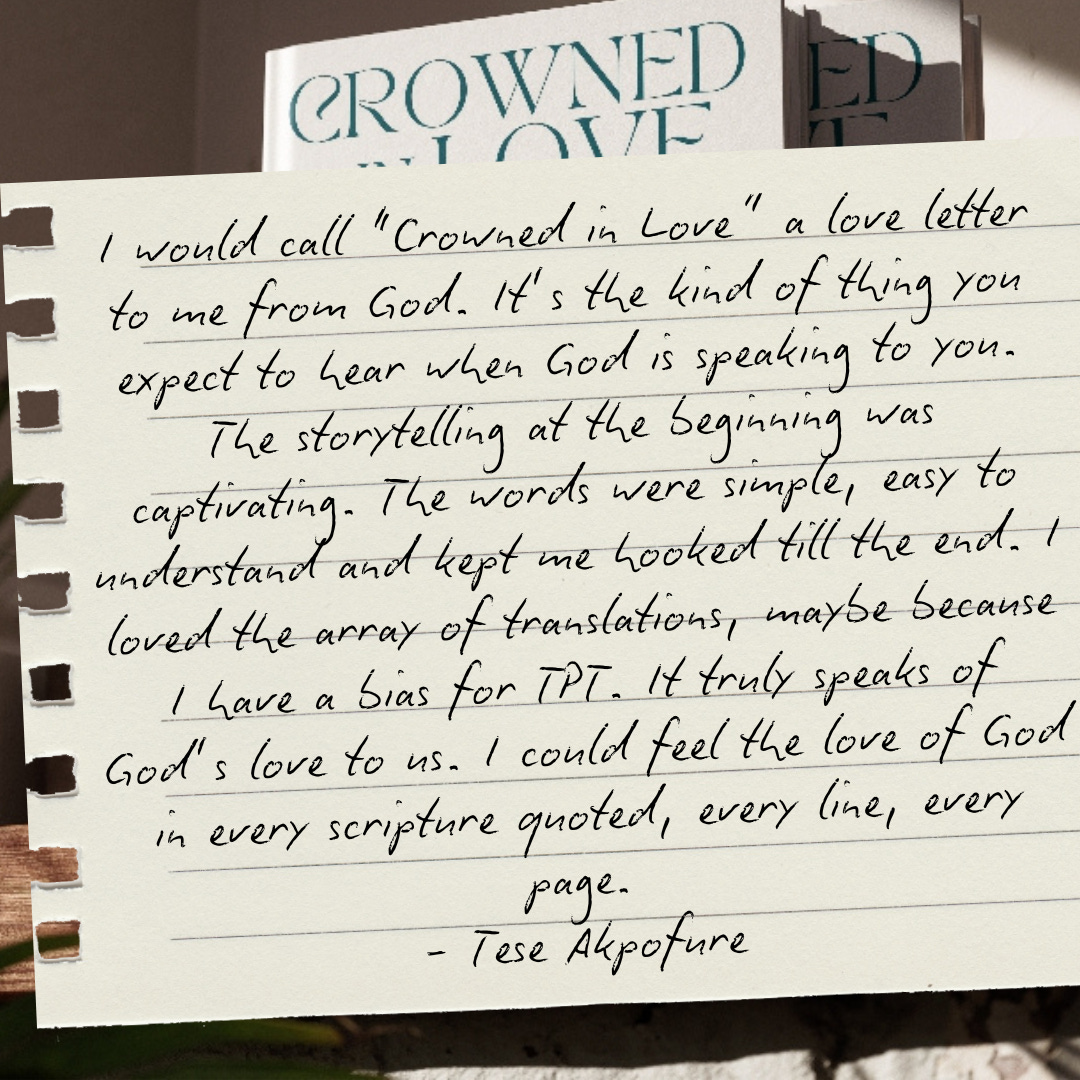 CROWNED
IN LOVE
ED
I would call "Crowned in Love" a love letter
to me from God. It's the kind of thing you
expect to hear when God is speaking to you.
The storytelling at the beginning was
captivating. The words were simple, easy to
understand and kept me hooked till the end. I
loved the array of translations, maybe because
I have a bias for TPT. It truly speaks of
God's love to us. I could feel the love of God
in every scripture quoted, every line, every
page.
- Tese Akpofure